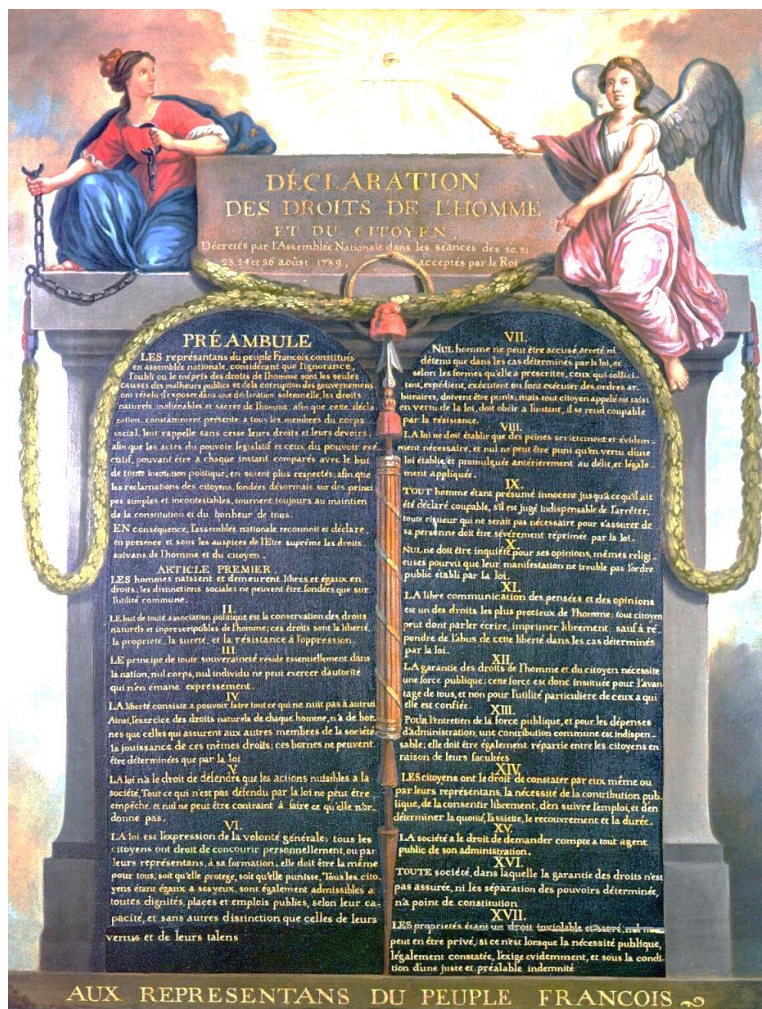 DÉCLARATION
DES DROITS DE L'HOMME
ET DU CITOYEN,
Décretés par l'Assemblée Nationale dans les séances des 20, 21
23, 24 et 26 août 1789, acceptés par le Roi
PRÉAMBULE
LES représentans du peuple François, constitués
en assemblée nationale, considérant que l'ignorance,
l'oubli ou le mépris des droits de l'homme sont les seules
causes des malheurs publics et de la corruption des gouvernemens
ont résolu d'exposer dans une déclaration solemnelle, les droits
naturels, inaliénables et sacrés de l'homme; afin que cette décla
ration, constamment présente a tous les membres du corps
social, leur rappelle sans cesse leurs droits et leurs devoirs;
afin que les actes du pouvoir legislatif et ceux du pouvoir exé
cutif, pouvant être à chaque instant comparés avec le but
de toute institution politique, en soient plus respectés; afin que
les reclamations des citoyens, fondées désormais sur des princi
pes simples et incontestables, tournent toujours au maintien
de la constitution et du bonheur de tous.
EN conséquence, l'assemblée nationale reconnoit et déclare,
en presence et sous les auspices de l'Etre suprême les droits
suivans de l'homme et du citoyen.
ARTICLE PREMIER.
LES hommes naissent et demeurent libres et égaux en
droits; les distinctions sociales ne peuvent être fondées que sur
l'utilité commune.
II.
LE but de toute association politique est la conservation des droits
naturels et inprescriptibles de l'homme; ces droits sont la liberté,
la propriété, la sureté, et la résistance à l'oppression.
III.
LE principe de toute souveraineté réside essentiellement dans
la nation, nul corps, nul individu ne peut exercer d'autorité
qui n'en émane expressement.
IV.
LA liberté consiste a pouvoir faire tout ce qui ne nuit pas à autrui
Ainsi, l'exercice des droits naturels de chaque homme, n'a de bor
nes que celles qui assurent aux autres membres de la société
la jouissance de ces mêmes droits; ces bornes ne peuvent
être déterminées que par la loi
V.
LA loi n'a le droit de défendre que les actions nuisibles à la
société. Tout ce qui n'est pas défendu par la loi ne peut être
empêché, et nul ne peut être contraint à faire ce qu'elle n'or-
donne pas.
VI.
LA loi est l'expression de la volonté générale; tous les
citoyens ont droit de concourir personnellement, ou par
leurs représentans, à sa formation; elle doit être la même
pour tous, soit qu'elle protege, soit qu'elle punisse. Tous les cito
yens étant égaux à ses yeux, sont également admissibles à
toutes dignités, places et emplois publics, selon leur ca
pacité, et sans autres distinction que celles de leurs
vertus et de leurs talens
VII.
NUL homme ne peut être accusé, arreté, ni
détenu que dans les cas déterminés par la loi, et
selon les formes qu'elle a prescrites, ceux qui sollici
tent, expédient, exécutent ou font exécuter des ordres ar-
bitraires, doivent être punis; mais tout citoyen appelé ou saisi
en vertu de la loi, doit obéir a l'instant, il se rend coupable
par la résistance.
VIII.
LA loi ne doit établir que des peines strictement et évidem-
ment nécessaire, et nul ne peut être puni qu'en vertu d'une
loi établie et promulguée antérierement au délit, et légale
ment appliquée.
IX.
TOUT homme étant présumé innocent jusqu'à ce qu'il ait
été déclaré coupable, s'il est jugé indispensable de l'arrêter,
toute rigueur qui ne serait pas nécessaire pour s'assurer de
sa personne doit être sévèrement réprimée par la loi.
X.
NUL ne doit être inquiété pour ses opinions, mêmes religi-
euses pourvu que leur manifestation ne trouble pas l'ordre
public établi par la loi.
XI.
LA libre communication des pensées et des opinions
est un des droits les plus precieux de l'homme; tout citoyen
peut dont parler écrire, imprimer librement; sauf à ré-
pondre de l'abus de cette liberté dans les cas déterminés
par la loi.
XII.
LA garantie des droits de l'homme et du citoyen nécessite
une force publique; cette force est donc instituée pour l'avan-
tage de tous, et non pour l'utilité particulière de ceux a qui
elle est confiée.
XIII.
Pour l'entretien de la force publique, et pour les dépenses
d'administration, une contribution commune est indispen-
sable; elle doit être également répartie entre les citoyens en
raison de leurs facultées
XIV.
LES citoyens ont le droit de constater par eux même ou
par leurs représentans, la nécessité de la contribution pub-
lique, de la consentir librement, d'en suivre l'emploi, et d'en
déterminer la quotité, l'assiette, le recouvrement et la durée.
XV.
LA société a le droit de demander compte a tout agent
public de son administration.
XVI.
TOUTE société, dans laquelle la garantie des droits n'est
pas assurée, ni les séparation des pouvoirs déterminée,
n'a point de constitution
XVII.
LES proprietés étant un droit inviolable et sacré, nul ne
peut en être privé, si ce n'est lorsque la nécessité publique,
légalement constatée, l'exige evidemment, et sous la condi-
tion d'une juste et préalable indemnité
AUX REPRESENTANS DU PEUPLE FRANCOIS